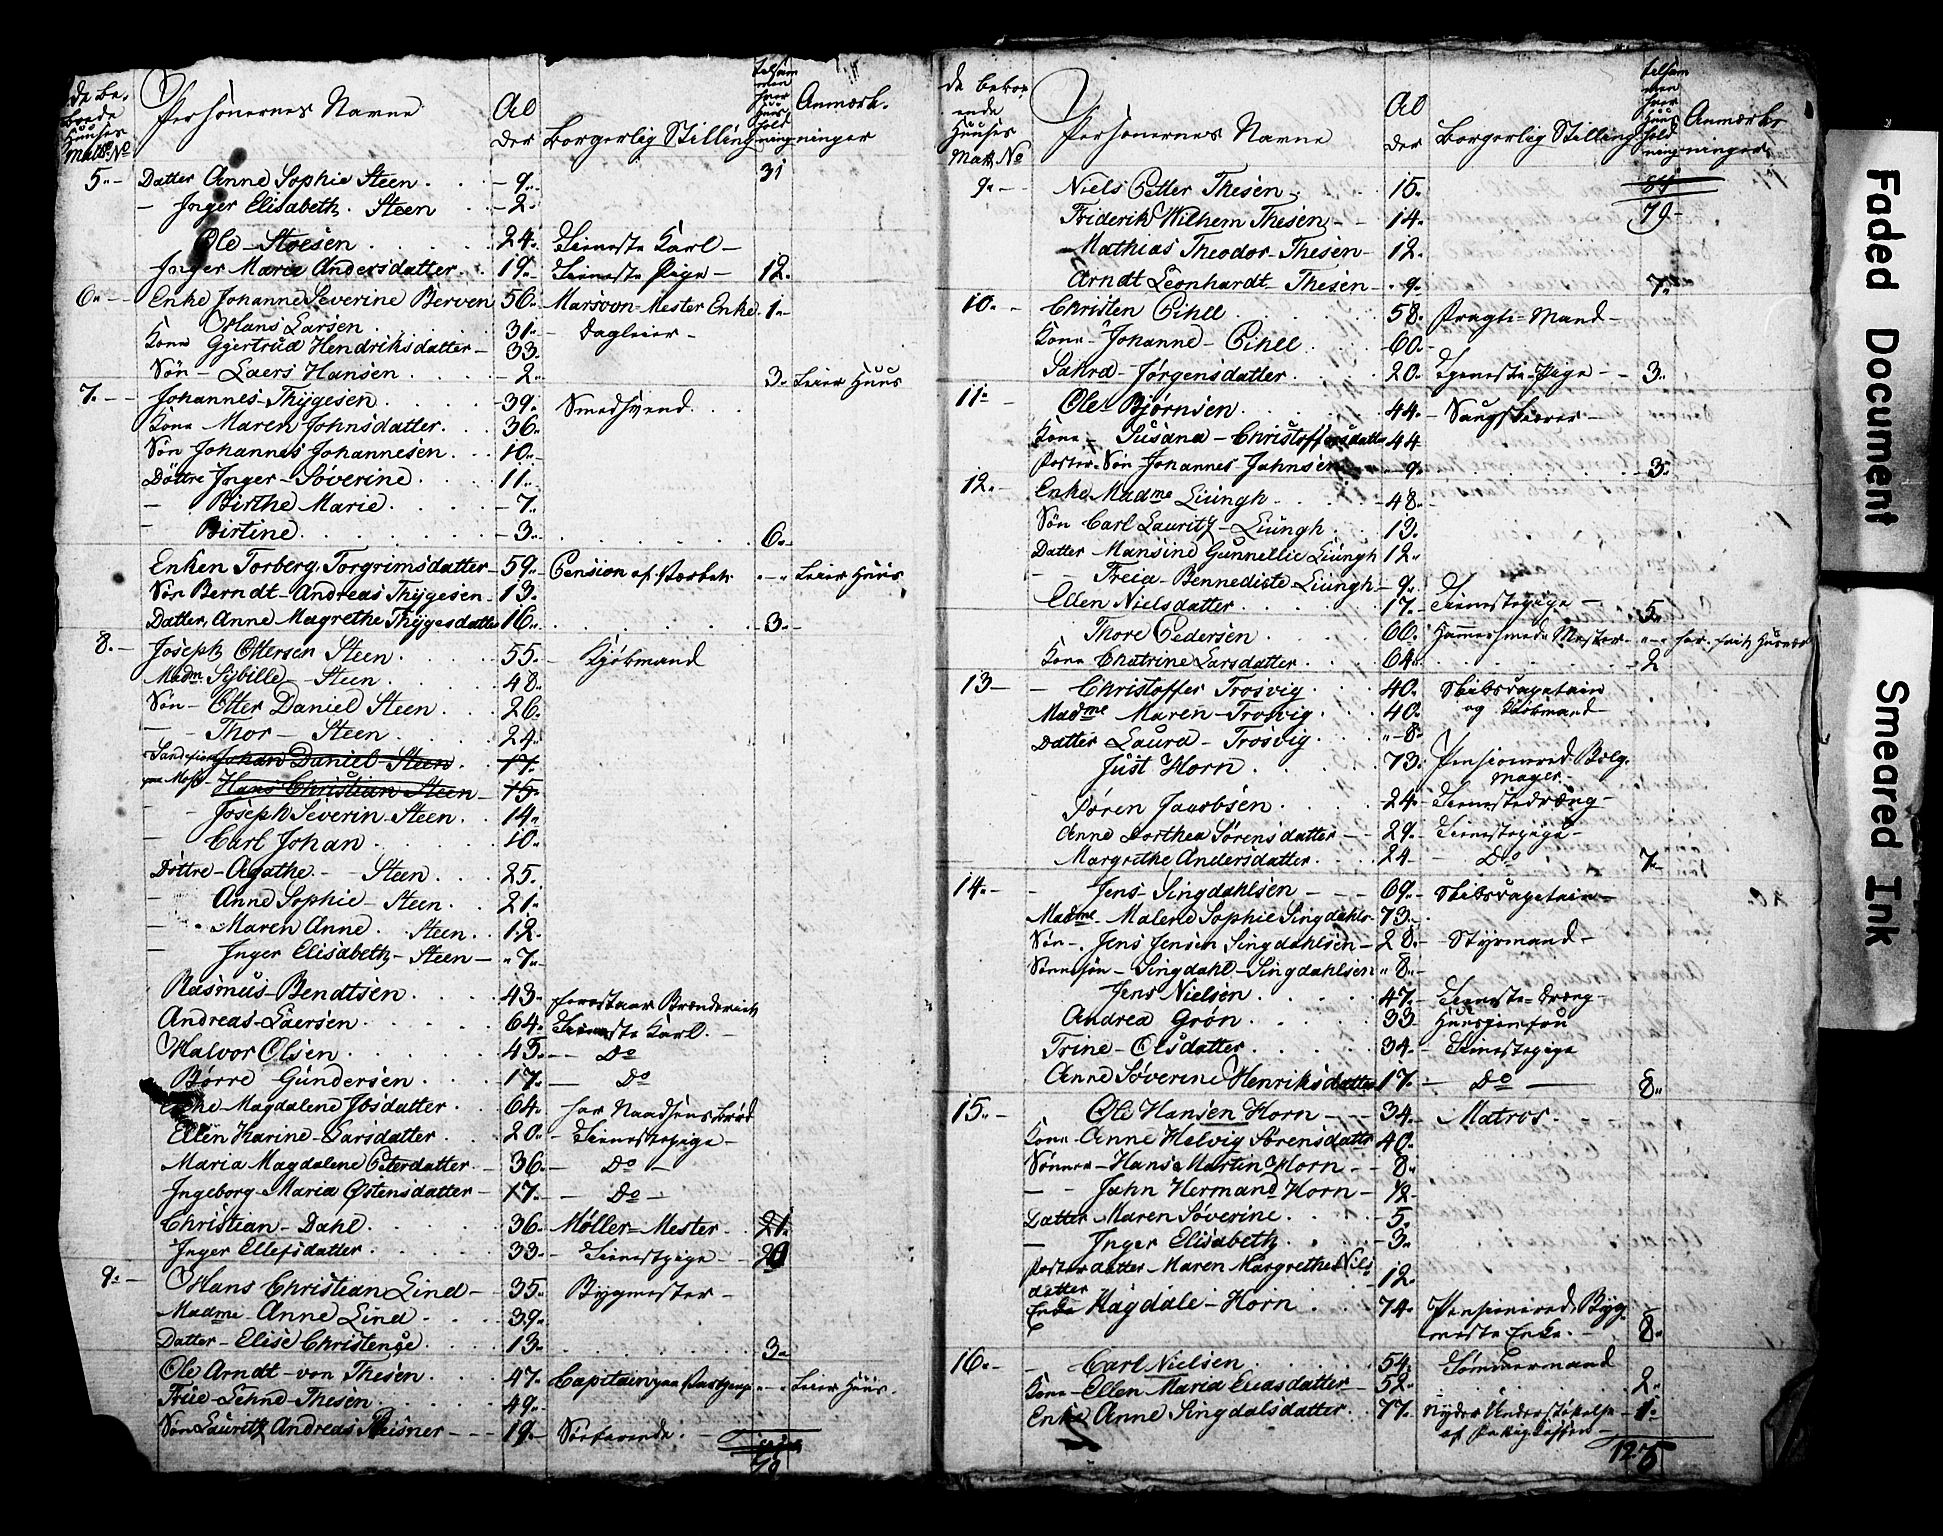 de be- boede Huuses Matr. No
Personernes Navne
Al der
Borgerlig Stilling
tilsam men hver Huus hold ning
Anmærk- ninger
31
5. Datter Anne Sophie Steen 9
- Inger Elisabeth Steen 2
Ole Stoesen 24 Tieneste Karl
Inger Marie Andersdatter 19 Tieneste Pige 12
6. Enke Johanne Severine Berven 56 Marsvon-Mester Enke 1
Hans Larsen 31 Dagleier
Kone Gjertrud Hendriksdatter 33
Søn Laers Hansen 2 3 Leier Huus
7. Johannes Thygesen 39 Smedsvend
Kone Maren Johnsdatter 36
Søn Johannes Johannesen 10
Döttre Inger Söverine 11
- Birthe Marie 7
Birtine 3 6
Enken Torberg Torgrimsdatter 59 Pension af Værket Leier Huus
Søn Berndt Andreas Thygesen 13
Datter Anne Magrethe Thygesdatter 16 3
8. Joseph Ottersen Steen 55 Kjøbmand
Madm. Sybille Steen 48
Søn Otter Daniel Steen 26
- Thor Steen 24
Johan Daniel Steen 17
paa Moss Hans Christian Steen 15
- Joseph Severin Steen 14
- Carl Johan 10
Döttre Agathe Steen 25
- Anne Sophie Steen 21
- Maren Anne Steen 12
- Inger Elisabeth Steen 7
Rasmus Bendtsen 43 forestaar Brænderiet
Andreas Laersen 64 Tieneste Karl
Halvor Olsen 45 Do
Børre Gundersen 17 Do
Magdalene Josdatter 64 har Naadsens brød
Ellen Karine Larsdatter 20 Tienestepige
Maria Magdalene Peterdatter 36 Do
Ingeborg Maria Østensdatter 17 Do
Christian Dahl 36 Møller-Mester 21
Inger Ellefsdatter 33 Tienestpige 20
9. Hans Christian Lind 35 Bygmester
Madme Anne Lind 39
Datter Elise Christense 13 3
Ole Arndt von Thesen 47 Capitain Leier Huus
Frue Lehne Thesen 49
Søn Lauritz Andreas 19 Søefarende
79
de beboe ende Huuses Matr. No
Personernes Navne
Al der
Borgerlig Stilling
tilsam men hver Huus hold ning
Anmærk ninger
79
9. Niels Petter Thesen 15
Friderik Wilhem Thesen 14
Mathias Theodor Thesen 12
Arndt Leonhardt Thesen 9 7
10. Christen Pihll 58 Pragt-Mand
Kone Johanne Pihll 60
Sahra Jørgensdatter 20 Tjeneste-Pige 3
11. Ole Bjørnsen 44 Saugskiærer
Kone Susana Christoffersdatter 44
Foster Søn Johannes Jahnsen 9 3
12. Enke Madme Liungh 48
Søn Carl Lauritz Liungh 13
Datter Mansine Gunnellie Liungh 12
- Freia Bennediste Liungh 9
Ellen Nielsdatter 17 Tienestepige 5
Thore Pedersen 66 Hammersmeds Mester har frit Huus
Kone Chatrine Larsdatter 64 2
13 Christoffer Trosvig 40 Skibscapitain og Kiöbmand
Madme Maren Trosvig 40
Datter Laura Trosvig 8
Just Horn 73 Pensionered Bælg mager
Sören Jacobsen 24 Tienestedræng
Anne Dorthea Sørensdatter 29 Tienestepige
Margrethe Andersdatter 24 Do 7
14. Jens Singdahlsen 69 Skibscapitain
Madme Malene Sophie Singdahls 73
Søn Jens Jensen Singdahlsen 28 Styrmand
Sønnesøn Singdahl Singdahlsen 8
Jens Nielsen 47 Tieneste-Dræng
Andrea Grøn 33 Huusjomfru
Trine Olsdatter 34 Tienestepige
Anne Søverine Henriksdatter 17 Do 8
15. Ole Hansen Horn 34 Matros
Kone Anne Helvig Sørensdatter 40
Sønner Hans Martin Horn 8
- Jahn Hermand Horn ½
Datter Maren Söverine 5
- Inger Elisabeth 3
Foster datter Maren Margrethe Nils datter 12
Enke Magdale Horn 74 Pensionered Byg mester Enke 8
16. Carl Nielsen 54 Tømmermand
Kone Ellen Maria Lucasdatter 52 2
Enke Anne Singdalsdatter 77 Nyder Understøttelse 1
af Fattig Cassen
125
Faded Document
Smeared Ink